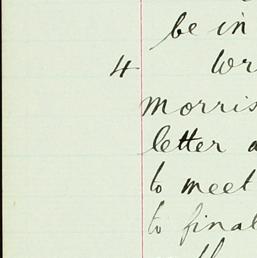 be in
4 Wr
Morris
letter a
to meet
to final